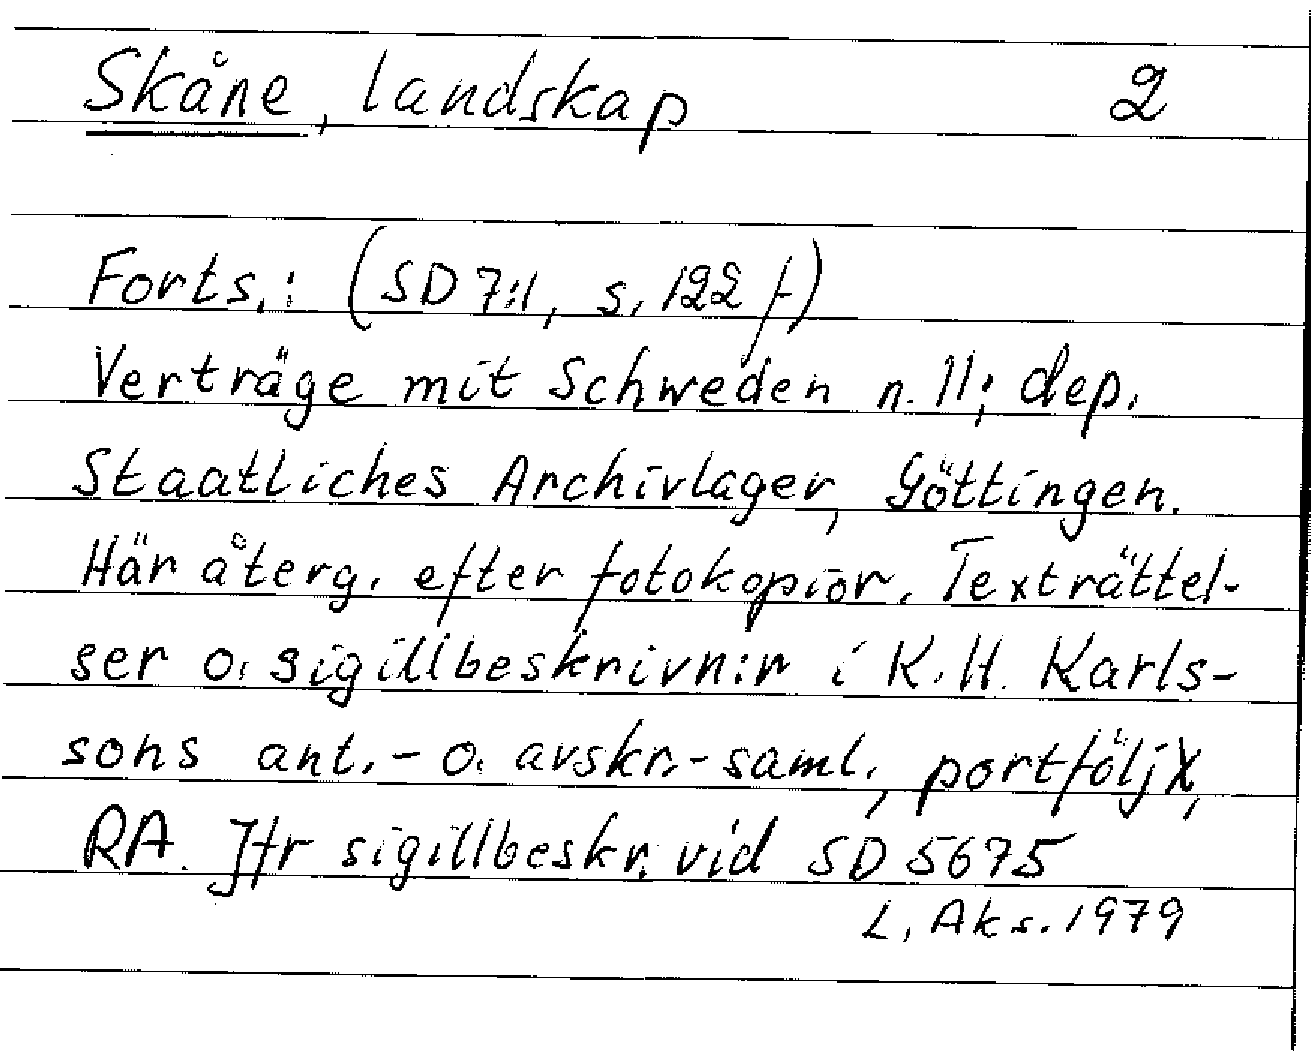 Skåne, landskap 2
Forts.: (SD 7:1, s. 122 f)
Verträge mit Schweden n. 11; dep.
Staatliches Archivlager, Göttingen.
Här återg. efter fotokopior. Texträttel-
ser o. sigillbeskrivn:r i K.H. Karls-
sons ant.- o. avskr.-saml., portfölj X,
RA. Jfr sigillbeskr. vid SD 5675
L. Aks. 1979